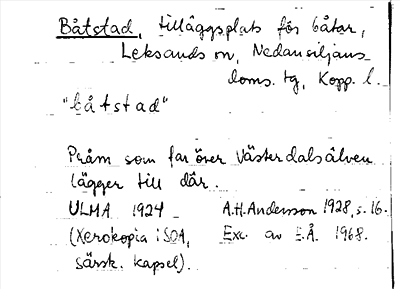 Båtstad, tilläggsplats för båtar,
Leksands sn, Nedansiljans
doms. tg, Kopp. l.
"båtstad"
Pråm som far över Västerdalsälven
lägger till där.
ULMA 1924 A.H. Andersson 1928, s. 16.
(Xerokopia i SOA, Exc. av E.Å. 1968.
särsk. kapsel).